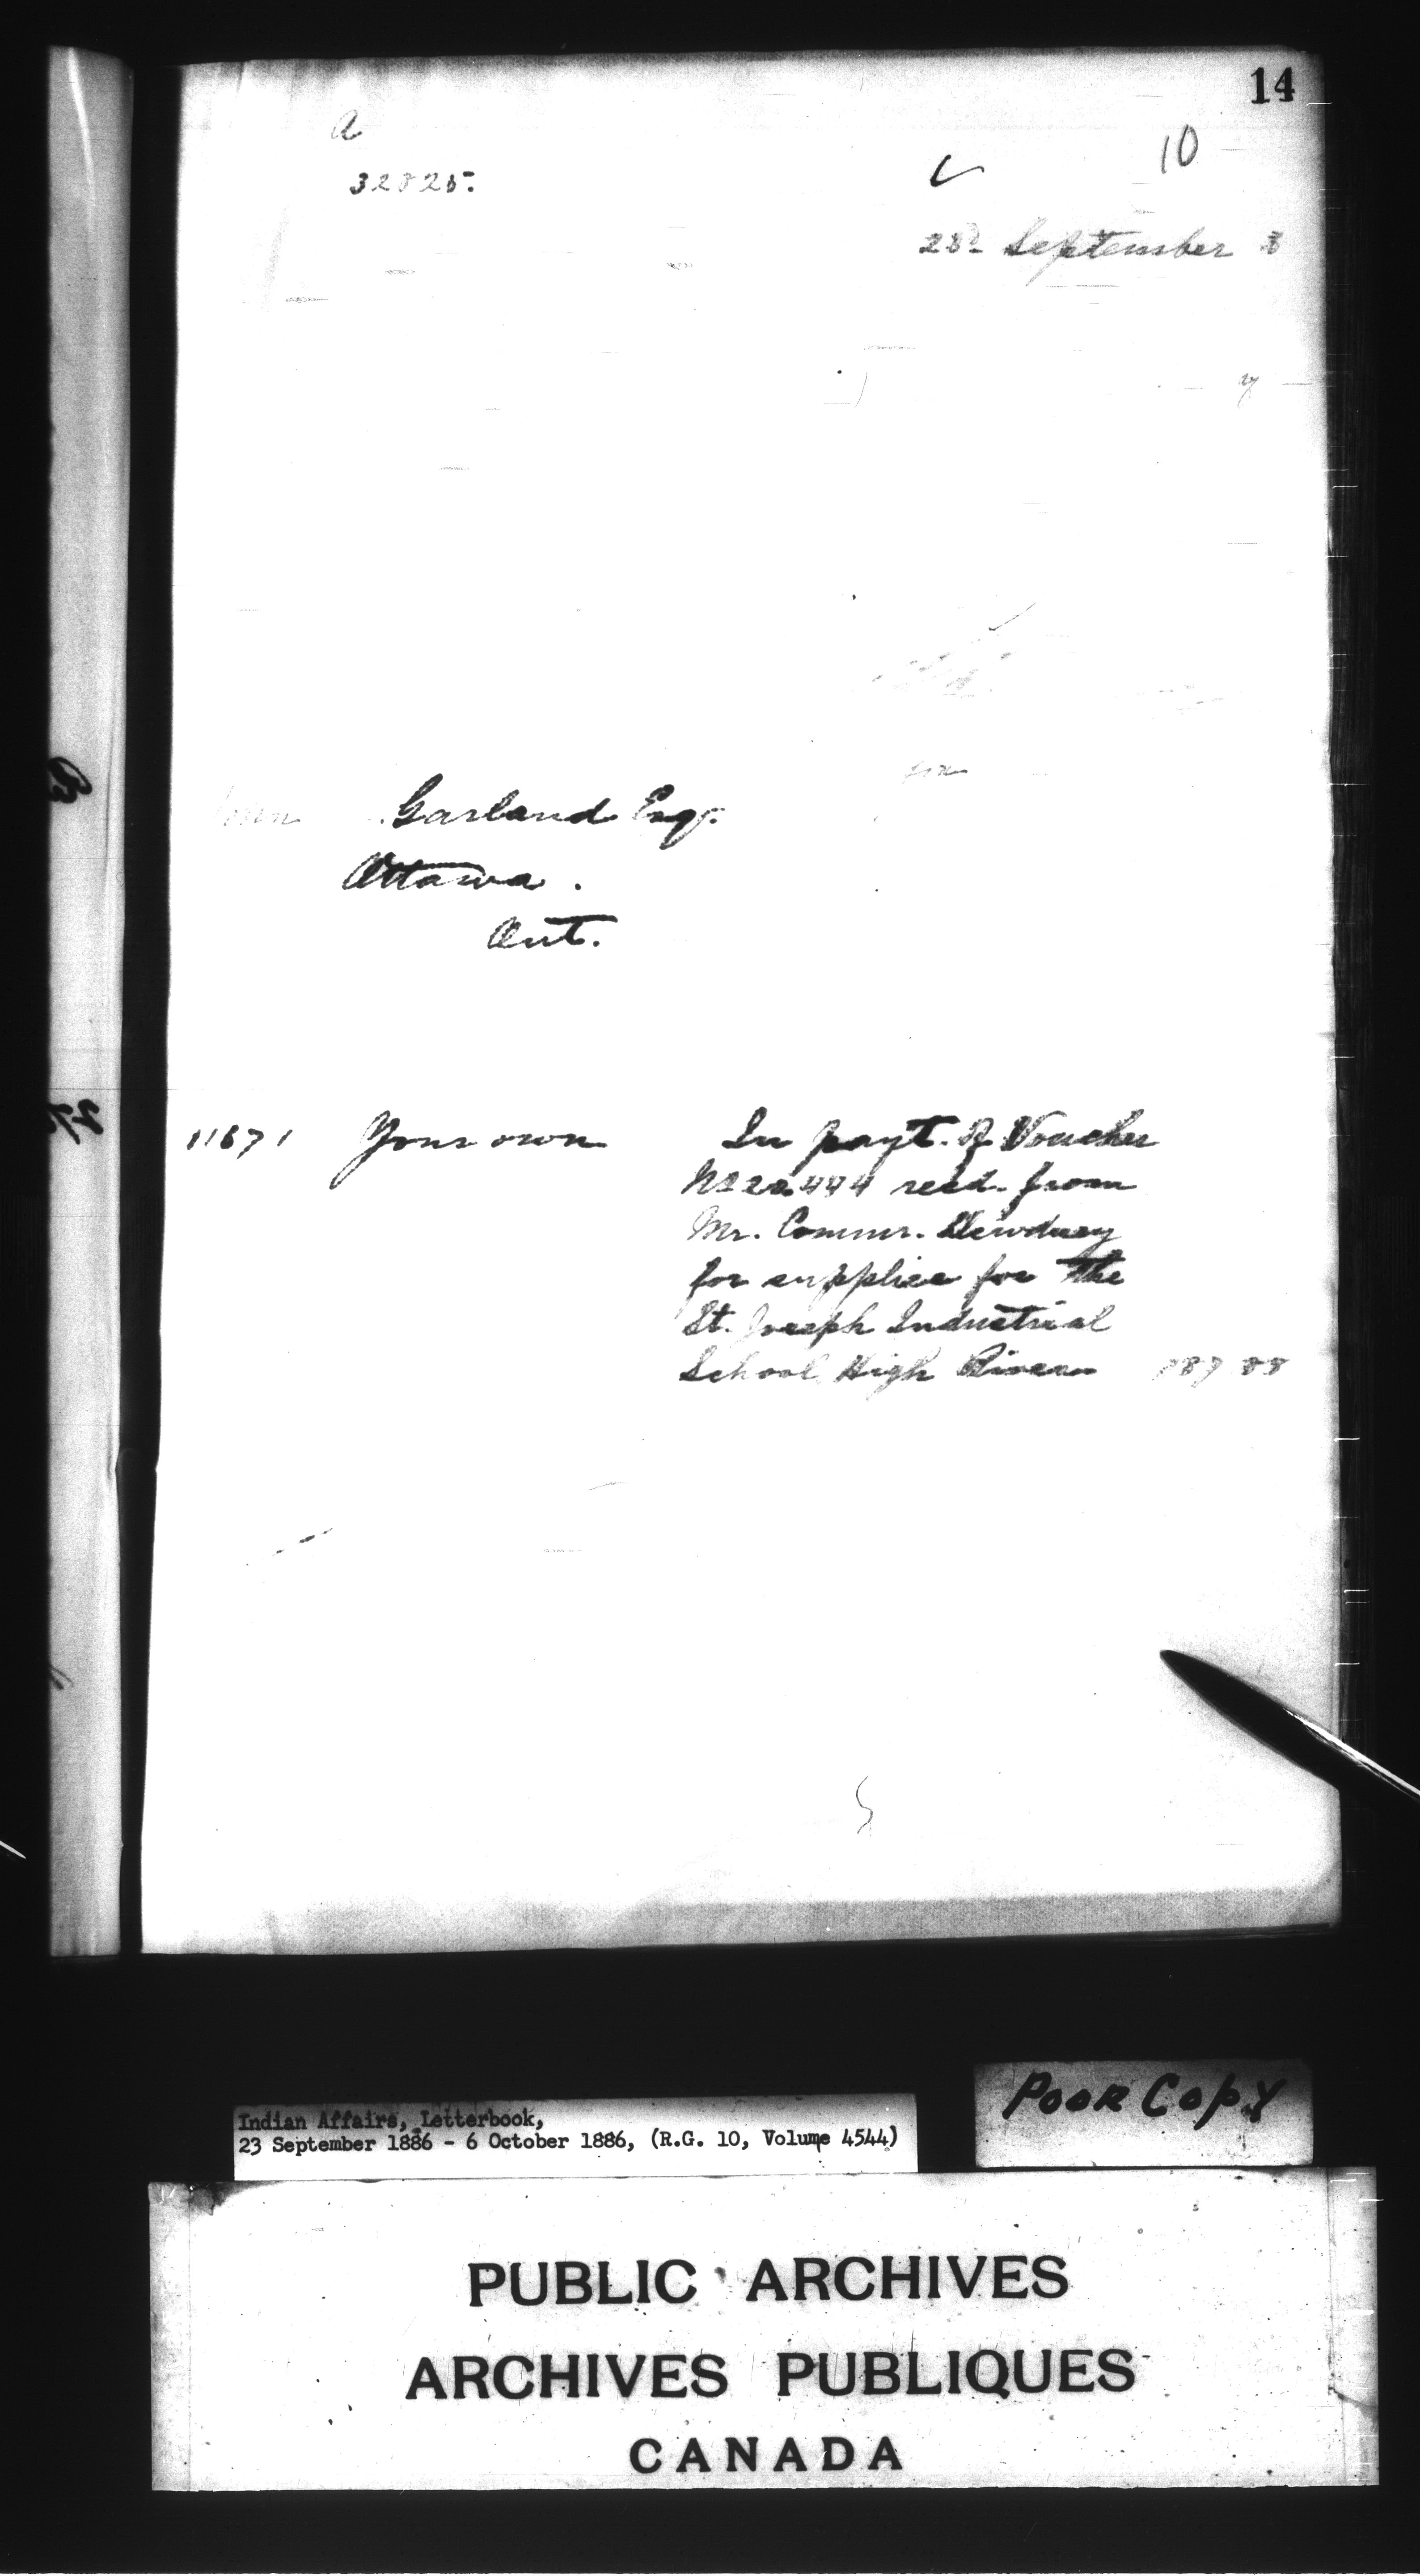 14
a
10
32825.
23rd September 8
Garland Esq.
Ottawa.
Ont.
11671 Your own In payt. of Voucher
recd. from
Mr. Commr. Dewdney
for supplies for the
St. Joseph Industrial
School High River
Poor Copy
Indian Affairs, Letterbook,
23 September 1886 - 6 October 1886, (R.G. 10, Volume 4544)
PUBLIC ARCHIVES
ARCHIVES PUBLIQUES
CANADA